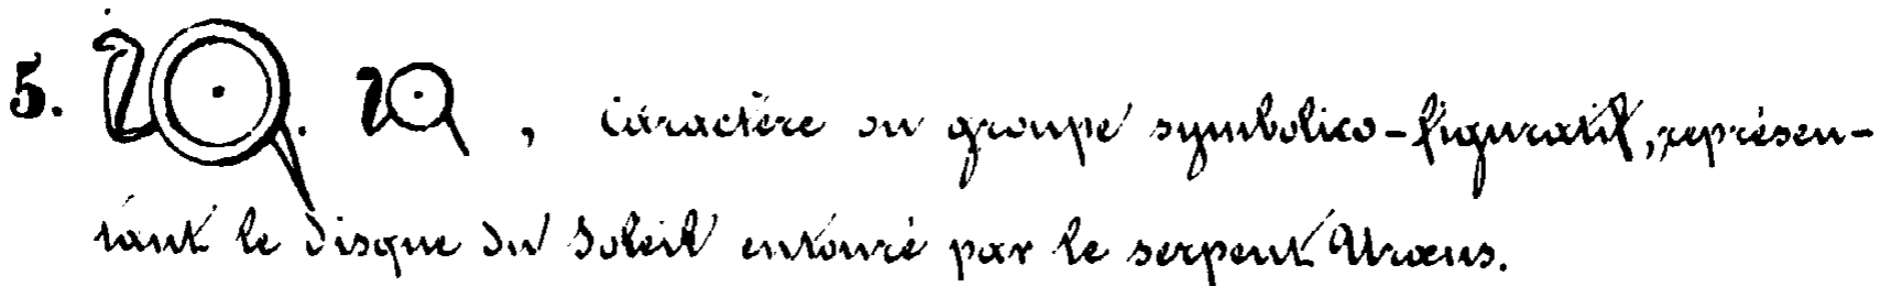 5. 𓇳. 𓇳, caractère ou groupe symbolico-figuratif, représen-
tant le disque du Soleil entouré par le serpent Uræus.